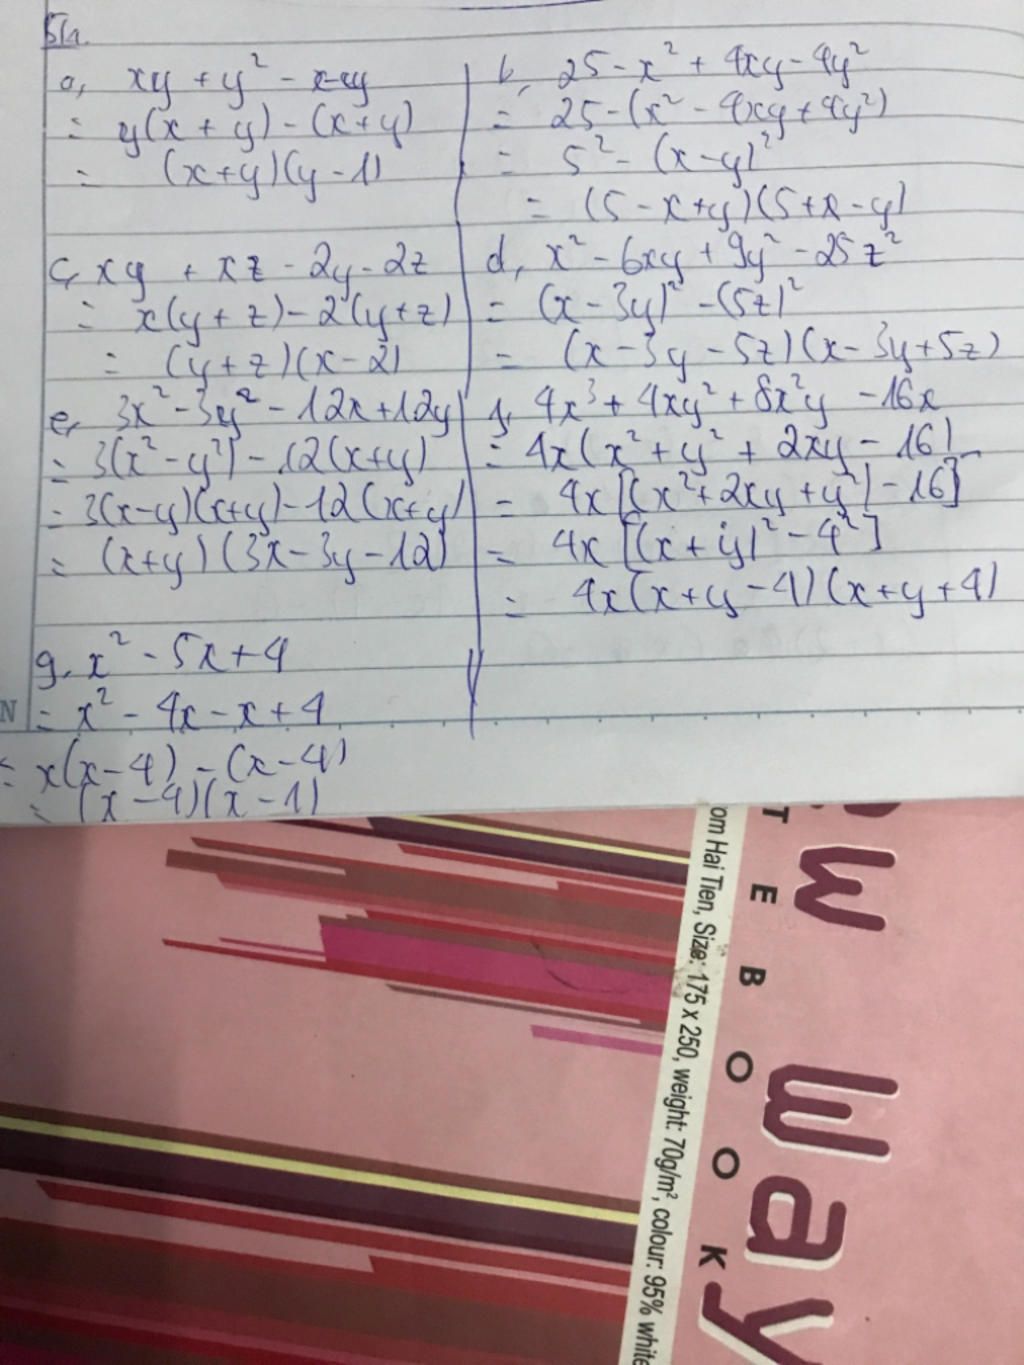 5/1.
a, xy + y² - x - y
= y(x + y) - (x + y)
= (x+y)(y-1)
b, 25 - x² + 4xy - 4y²
= 25 - (x² - 4xy + 4y²)
= 5² - (x-y)²
= (5 - x+y)(5+x-y)
c, xy + xz - 2y - 2z
= x(y+z) - 2(y+z)
= (y+z)(x-2)
d, x² - 6xy + 9y² - 25z²
= (x - 3y)² - (5z)²
= (x - 3y - 5z)(x - 3y + 5z)
e, 3x² - 3y² - 12x + 12y
= 3(x² - y²) - 12(x+y)
= 3(x-y)(x+y) - 12(x+y)
= (x+y)(3x - 3y - 12)
f, 4x³ + 4xy² + 8x²y - 16x
= 4x(x² + y² + 2xy - 16)
= 4x[(x² + 2xy + y²) - 16]
= 4x[(x + y)² - 4²]
= 4x(x+y-4)(x+y+4)
g, x² - 5x + 4
N
= x² - 4x - x + 4
= x(x-4) - (x-4)
= (x-4)(x-1)
om Hai Tien, Size: 175 x 250, weight: 70g/m², colour: 95% white
T E B O O K
w way